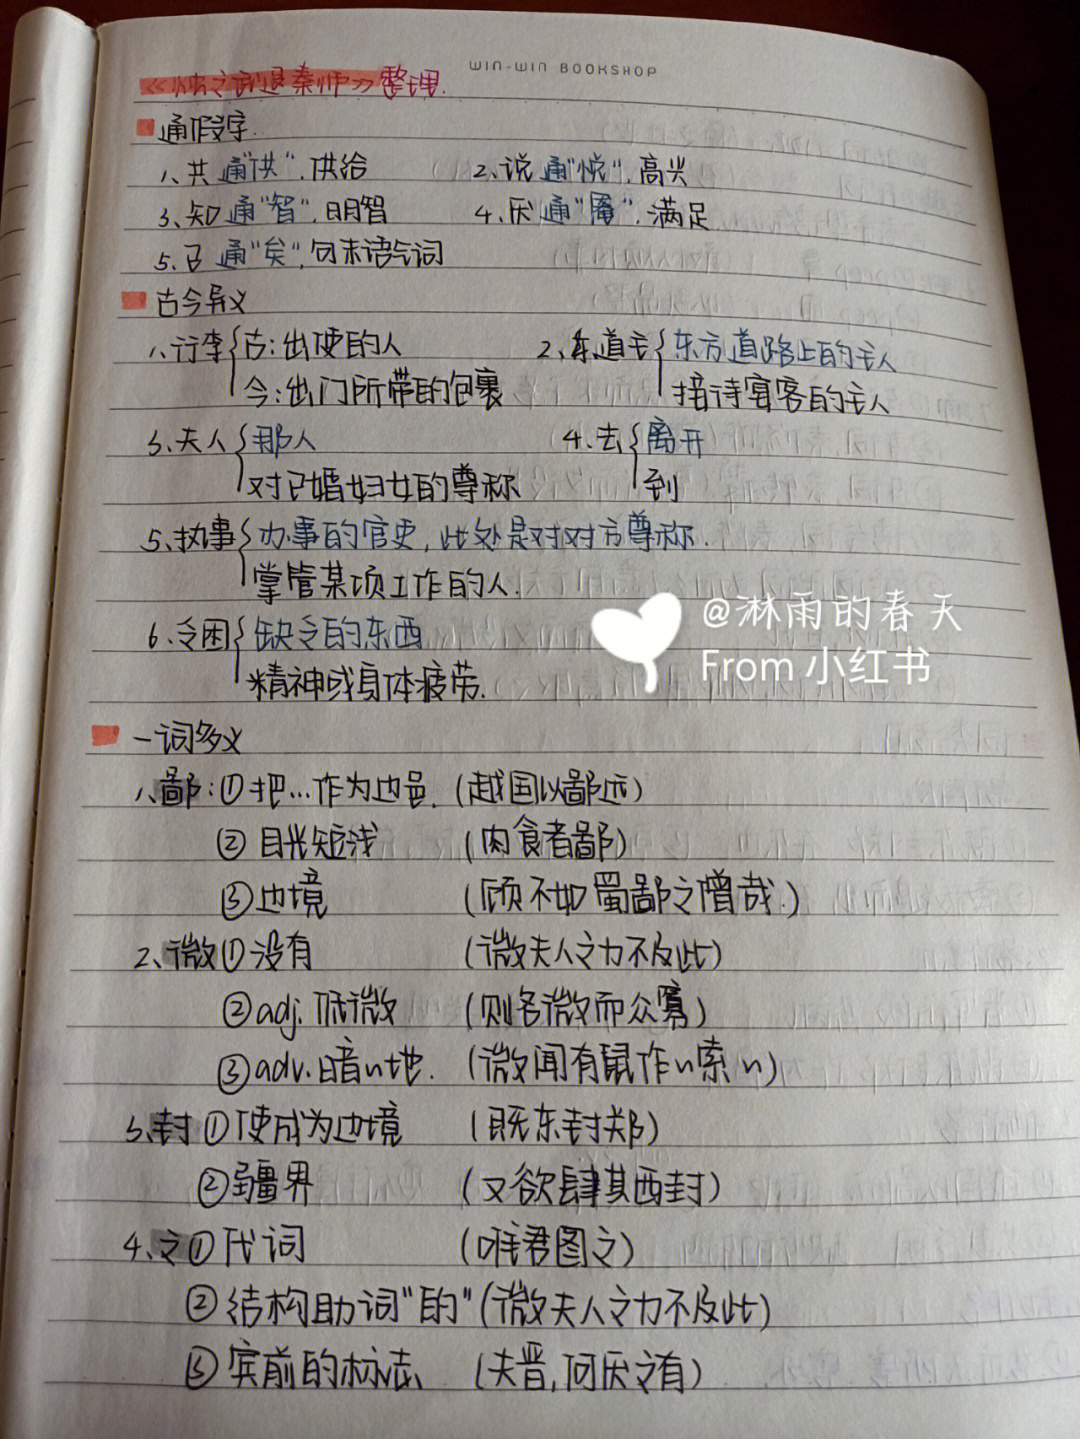 WIN-WIN BOOKSHOP
《烛之武退秦师》整理.
通假字.
1、共 通"供",供给 2、说 通"悦",高兴
3、知 通"智",明智 4、厌 通"餍",满足
5、已 通"矣",句末语气词
古今异义
1、行李{古:出使的人 2、东道主{东方道路上的主人
今:出门所带的包裹 接待宴客的主人
3、夫人{那人 4、去{离开
对已婚妇女的尊称 到
5、执事{办事的官吏,此处是对对方尊称.
掌管某项工作的人.
@淋雨的春天
6、乏困{缺乏的东西
From 小红书
精神或身体疲劳.
一词多义
1、鄙:①把…作为边邑.(越国以鄙远)
②目光短浅 (肉食者鄙)
③边境 (顾不如蜀鄙之僧哉.)
2、微①没有 (微夫人之力不及此)
②adj.低微 (则名微而众寡)
③adv.暗n地.(微闻有鼠作n索n)
3、封①使成为边境 (既东封郑)
②疆界 (又欲肆其西封)
4、之①代词 (唯君图之)
②结构助词"的"(微夫人之力不及此)
③宾前的标志 (夫晋,何厌之有)